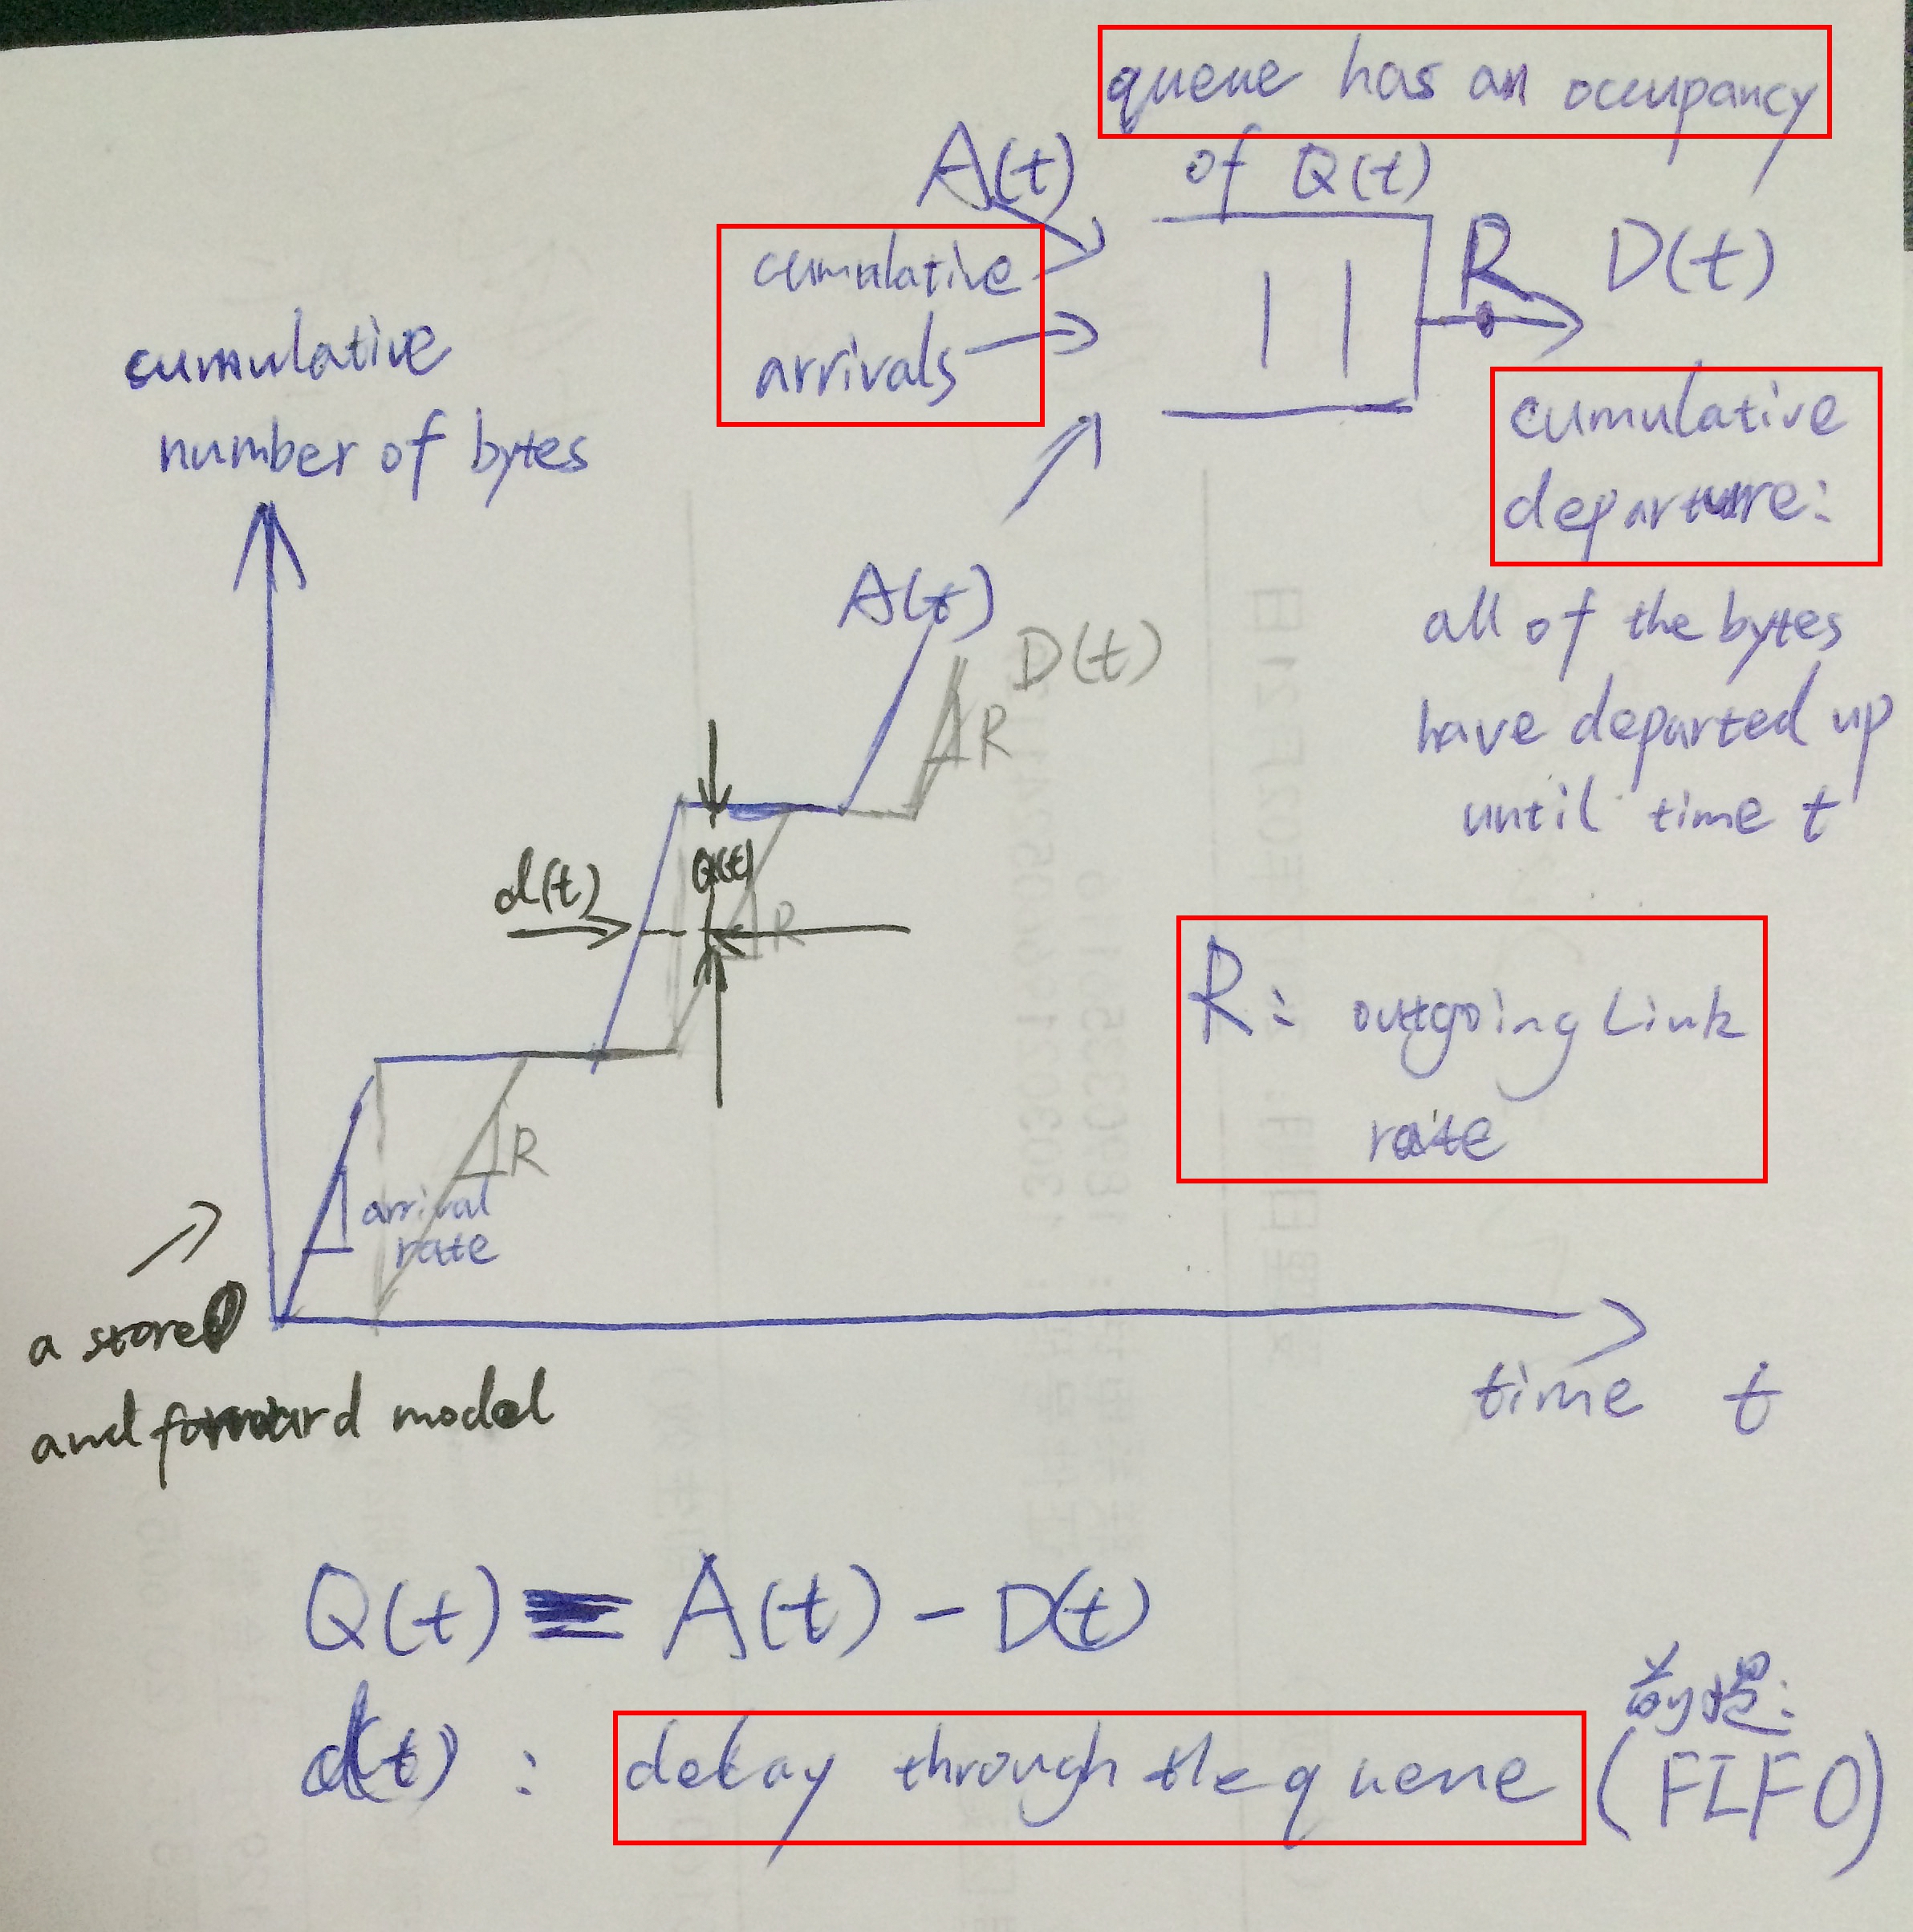 queue has an occupancy
A(t) of Q(t)
cumulative
arrivals
R D(t)
cumulative
departure:
all of the bytes
have departed up
until time t
cumulative
number of bytes
A(t)
D(t)
R
d(t)
Q(t)
R
R: outgoing Link
rate
R
arrival
rate
a store
and forward model
time t
Q(t) = A(t) - D(t)
前提:
d(t) : delay through the queue (FIFO)